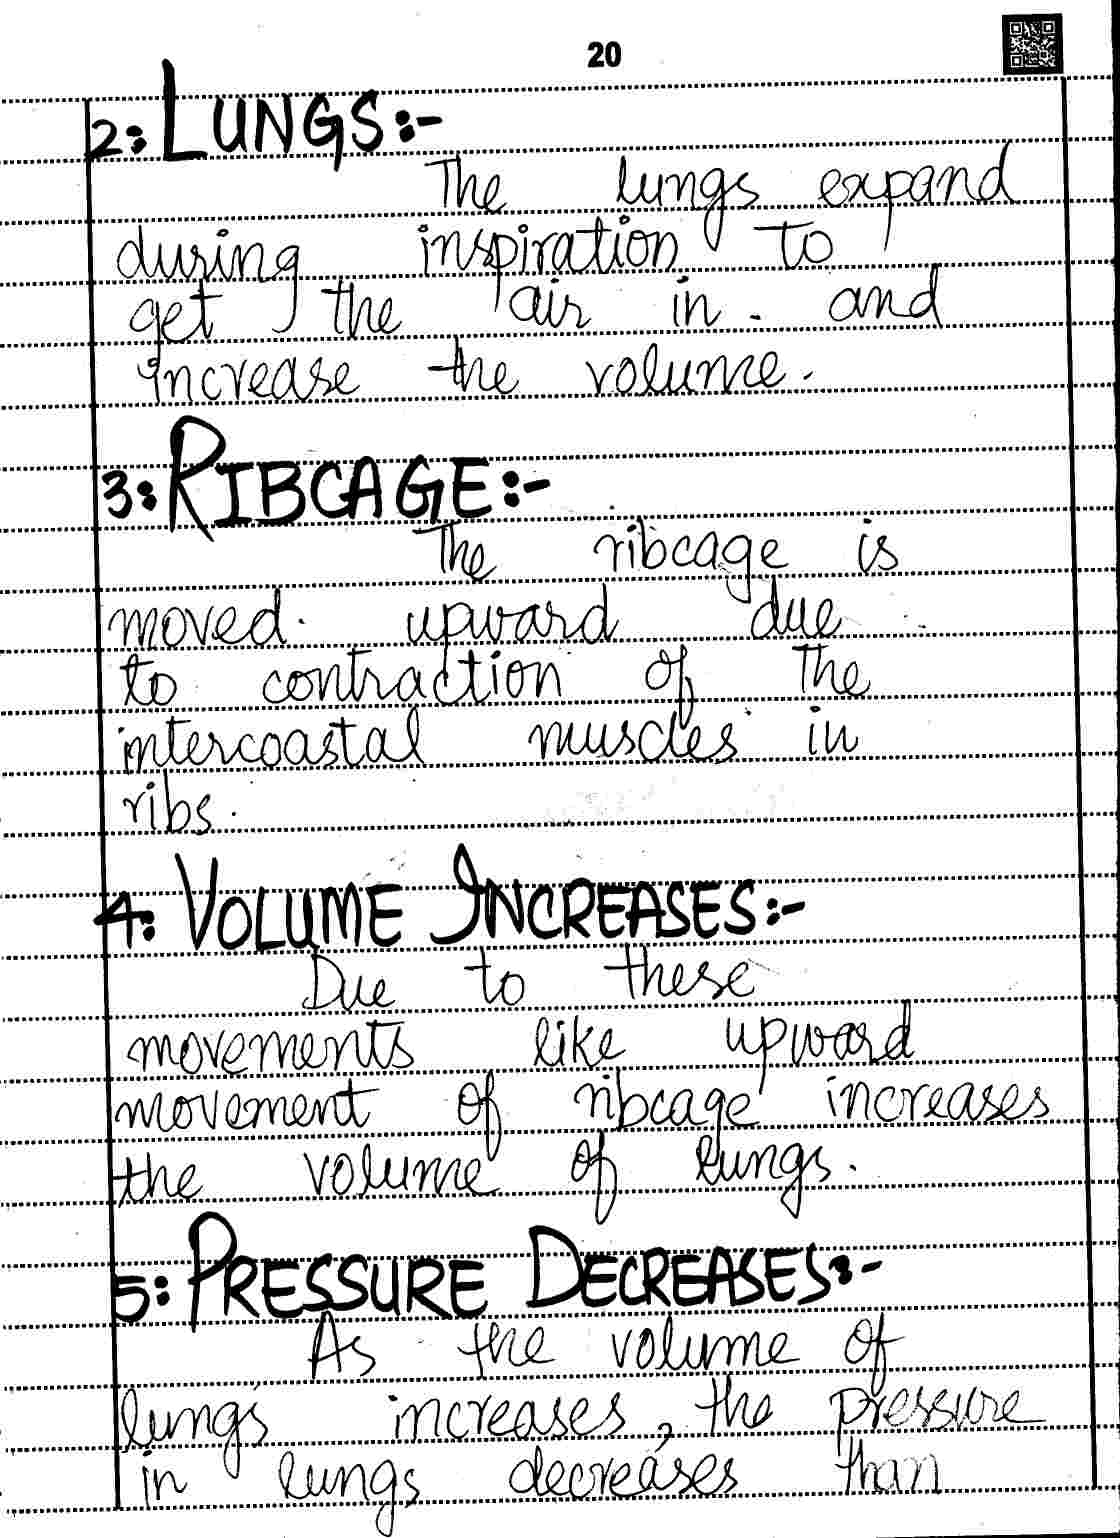 20
2: LUNGS:-
The lungs expand
during inspiration to
get the air in. and
increase the volume.
3: RIBCAGE:-
The ribcage is
moved. upward due
to contraction of the
intercoastal muscles in
ribs.
4: VOLUME INCREASES:-
Due to these
movements like upward
movement of ribcage increases
the volume of lungs.
5: PRESSURE DECREASES:-
As the volume of
lungs increases, the pressure
in lungs decreases than